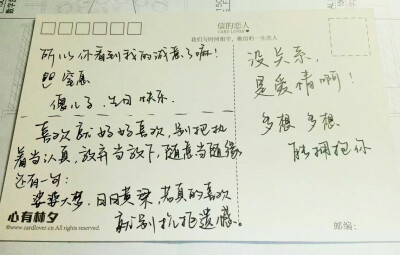 信的恋人
CARD LOVER
我们与时间相守，做信的一生恋人
所以你看到我的诚意了嘛！
窒息
傻儿子，生日快乐.
喜欢就好好喜欢，别把执
着当认真，放弃当放下，随意当随缘
还有一句：
婆娑大梦，日日黄粱，若真的喜欢
就别抱抱遗憾。
没关系，
是爱情啊！
多想 多想
能拥抱你
心有林夕
©www.cardlover.cn All rights reserved.
邮编：